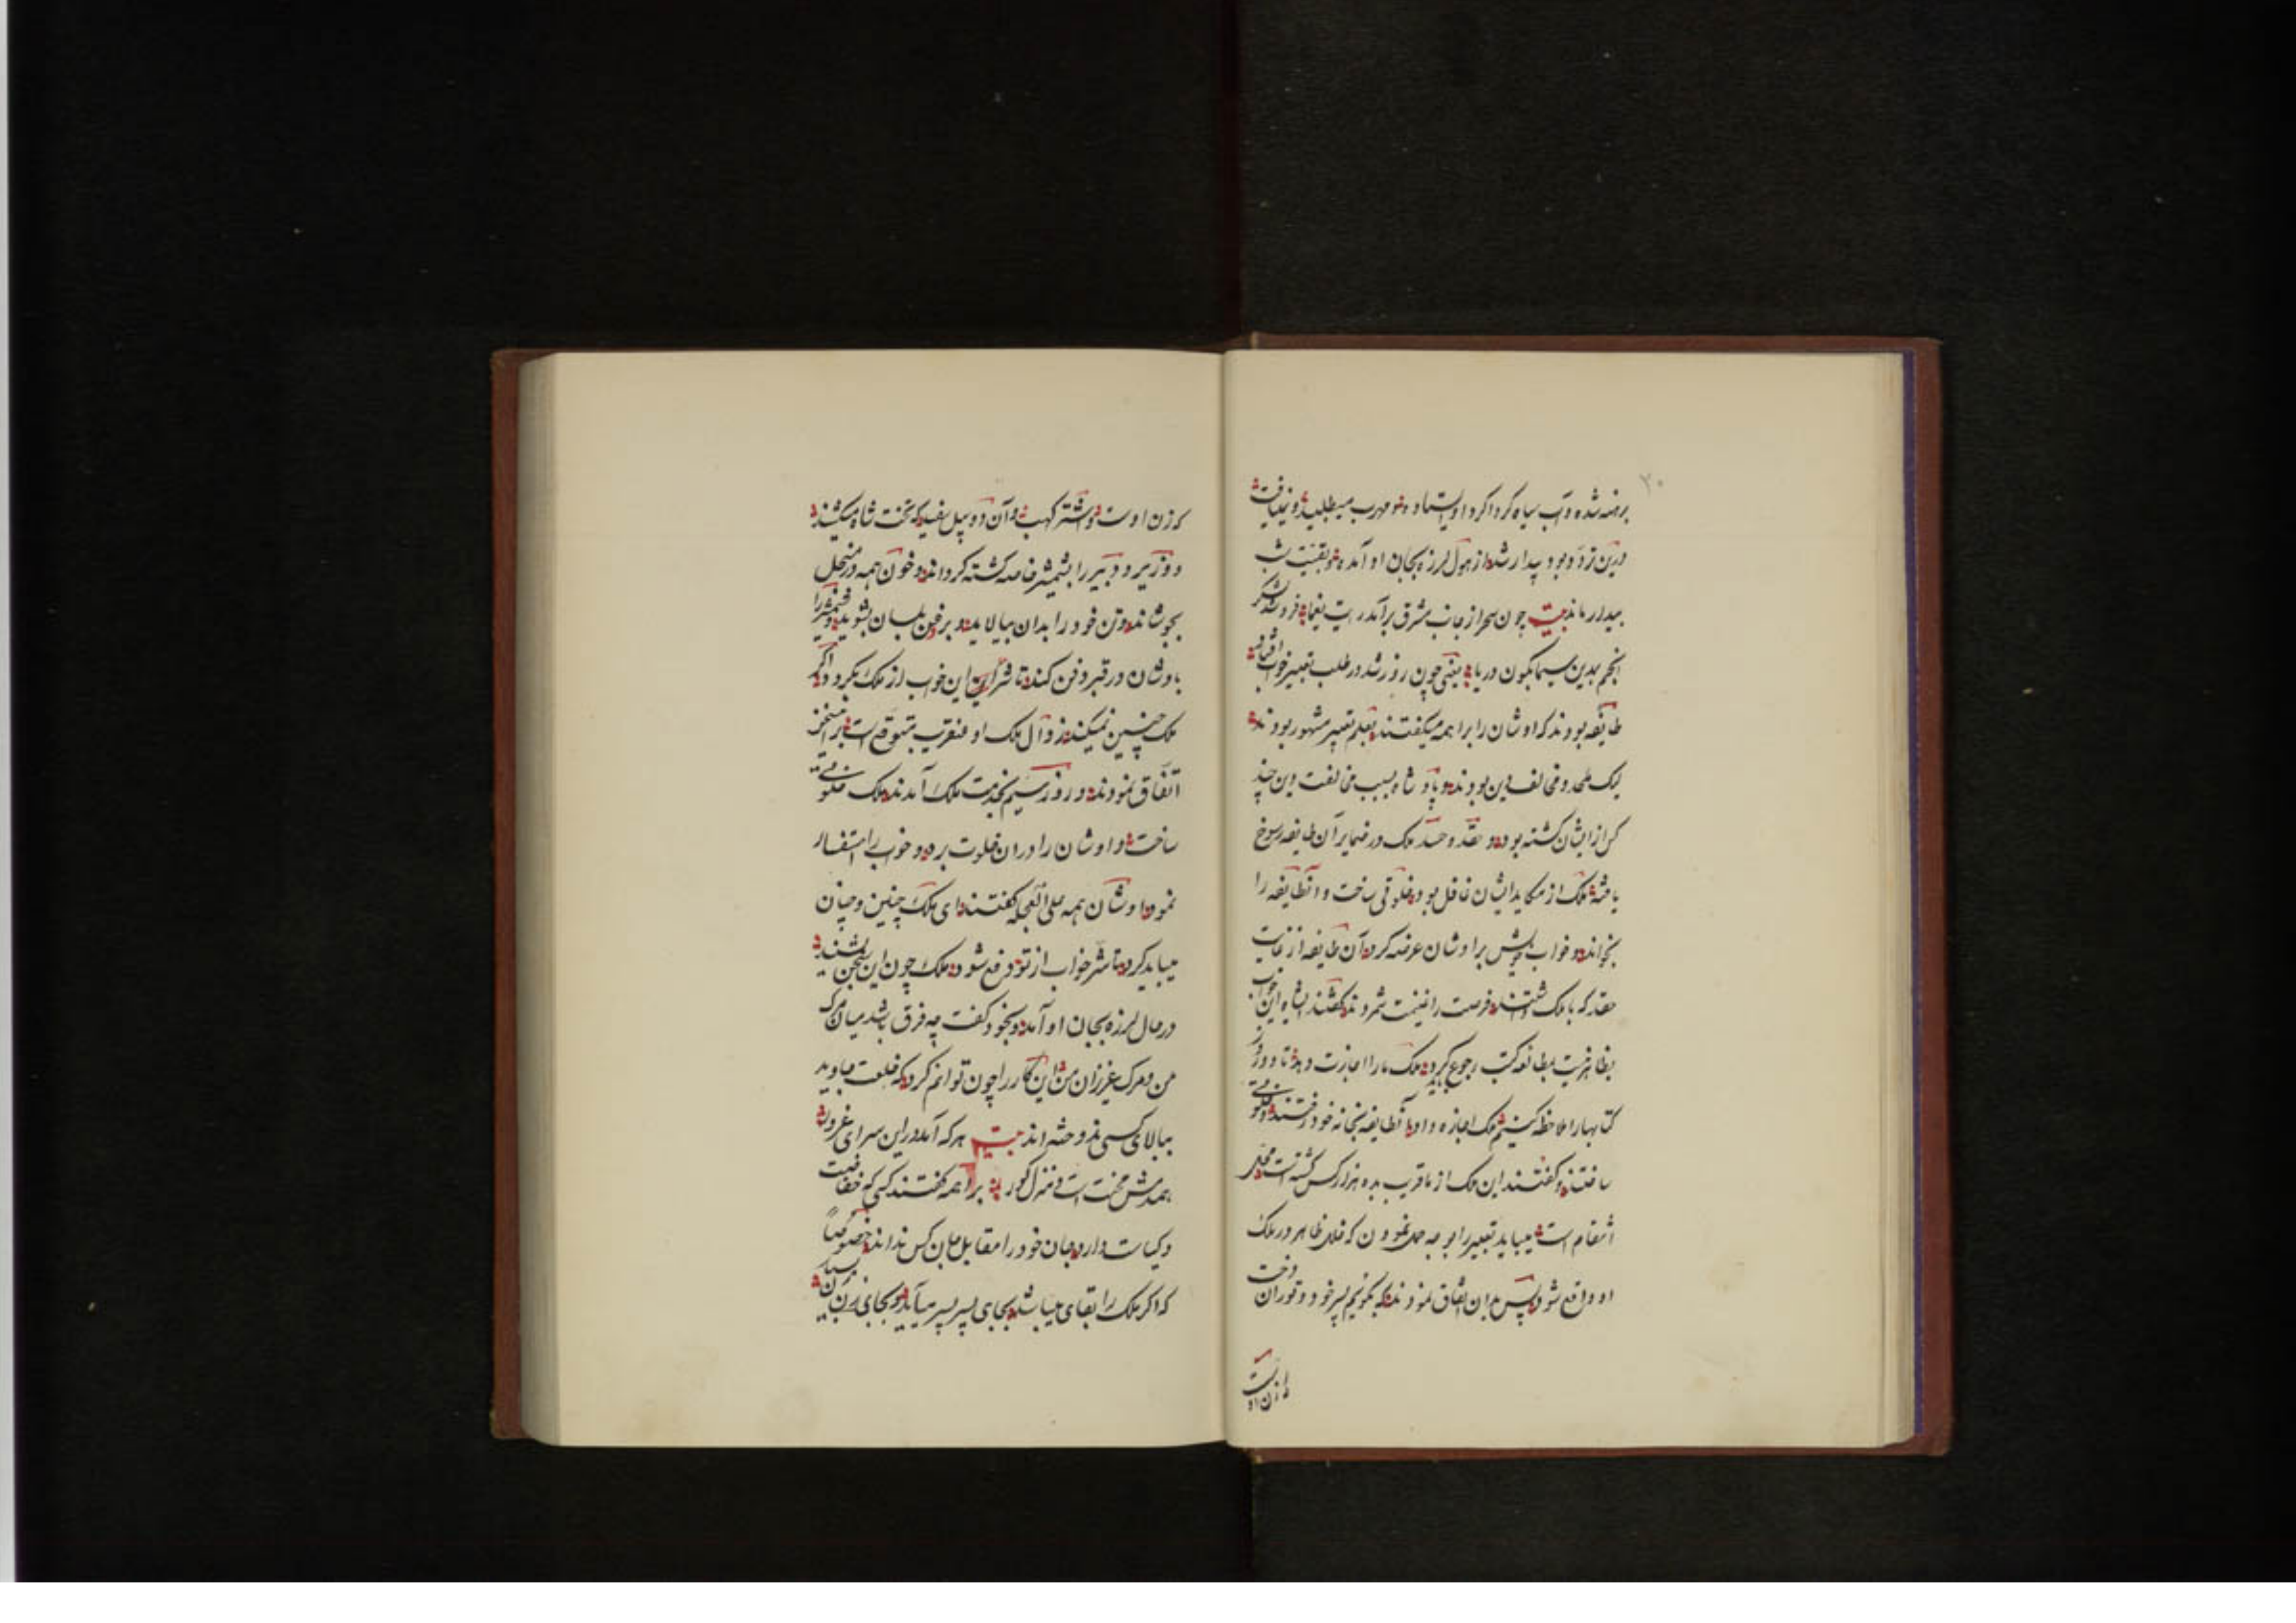 ۲۰
برهنه شده و آب سیاه گرداگرد او ایستاده و مهرب میطلبید و نمییافت
درین تردد بود بیدار شد از هول لرزه بجان او آمده و بقیت شب
بیدار ماند بیت چون سحر از جانب مشرق برآمد رایت یغما فرو شد لشکر
انجم بدین سیمابگون دریا یعنی چون روز شد در طلب تعبیر خواب افتاد
طایفه بودند که اوشان را براهمه میگفتند بعلم تعبیر مشهور بودند
لیک ملحد و مخالف دین بودند و پادشاه بسبب مخالفت دین چند
کس از ایشان کشته بود و حقد و حسد ملک در ضمایر آن طایفه رسوخ
یافته ملک از مکاید ایشان غافل بود خلوتی ساخت و آنطایفه را
بخواند و خواب خویش بر اوشان عرضه کرد آن طایفه از غایت
حقد که با ملک داشتند فرصت را غنیمت شمردند گفتند ای شاه این خواب
بظاهر نیست بمطالعه کتب رجوع باید کرد ملک ما را اجازت دهد تا دو روز
کتابها را ملاحظه کنیم ملک اجازه داد آنطایفه بخانه خود رفتند و خلوتی
ساختند و گفتند این ملک از ما قریب بده هزار کس کشته است محل
انتقام است میباید تعبیر را بوجه حمل نمودن که خلل ظاهر در ملک
او واقع شود پس بدان اتفاق نمودند که بگوئیم پسر خود و توران دخت
را که زن اوست
که زن اوست و شتر کهب و آن دو پیل سفید که تخت شاه میکشند
و وزیر و دبیر را بشمشیر خاصه کشته گرداند و خون همه در منجل
بجوشاند و تن خود را بدان بیالاید و بروغن بلسان بشوید و شمشیر را
با اوشان در قبر دفن کند تا شر این خواب از ملک بگردد و اگر
ملک چنین نمیکند زوال ملک او عنقریب متوقع است بر این سخن
اتفاق نمودند و روز سیم بخدمت ملک آمدند ملک خلوتی
ساخت و اوشان را در ان خلوت برد و خواب را استفسار
نمود اوشان همه علی العجله گفتند ای ملک چنین و چنان
میباید کرد تا شر خواب از تو دفع شود ملک چون این سخن بشنید
در حال لرزه بجان او آمد و بخود گفت چه فرق باشد میان مرگ
من و مرگ عزیزان من این کار را چون توانم کرد که خلعت جاوید
ببالای کسی ندوخته‌اند بیت هر که آمد در این سرای غرور
همدمش محنت است و منزل گور براهمه گفتند کسی که حصافت
و کیاست دارد جان خود را مقابل جان کس نداند خصوصاً
که اگر ملک را بقای میباشد بجای پسر پسر میآید و بجای زن زن بسیار